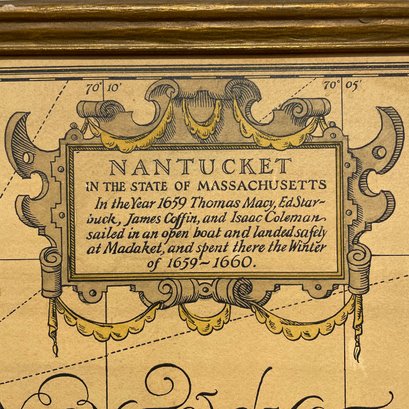 70° 10'
70° 05'
NANTUCKET
IN THE STATE OF MASSACHUSETTS
In the Year 1659 Thomas Macy, Ed Star-
buck, James Coffin, and Isaac Coleman
sailed in an open boat and landed safely
at Madaket, and spent there the Winter
of 1659~1660.